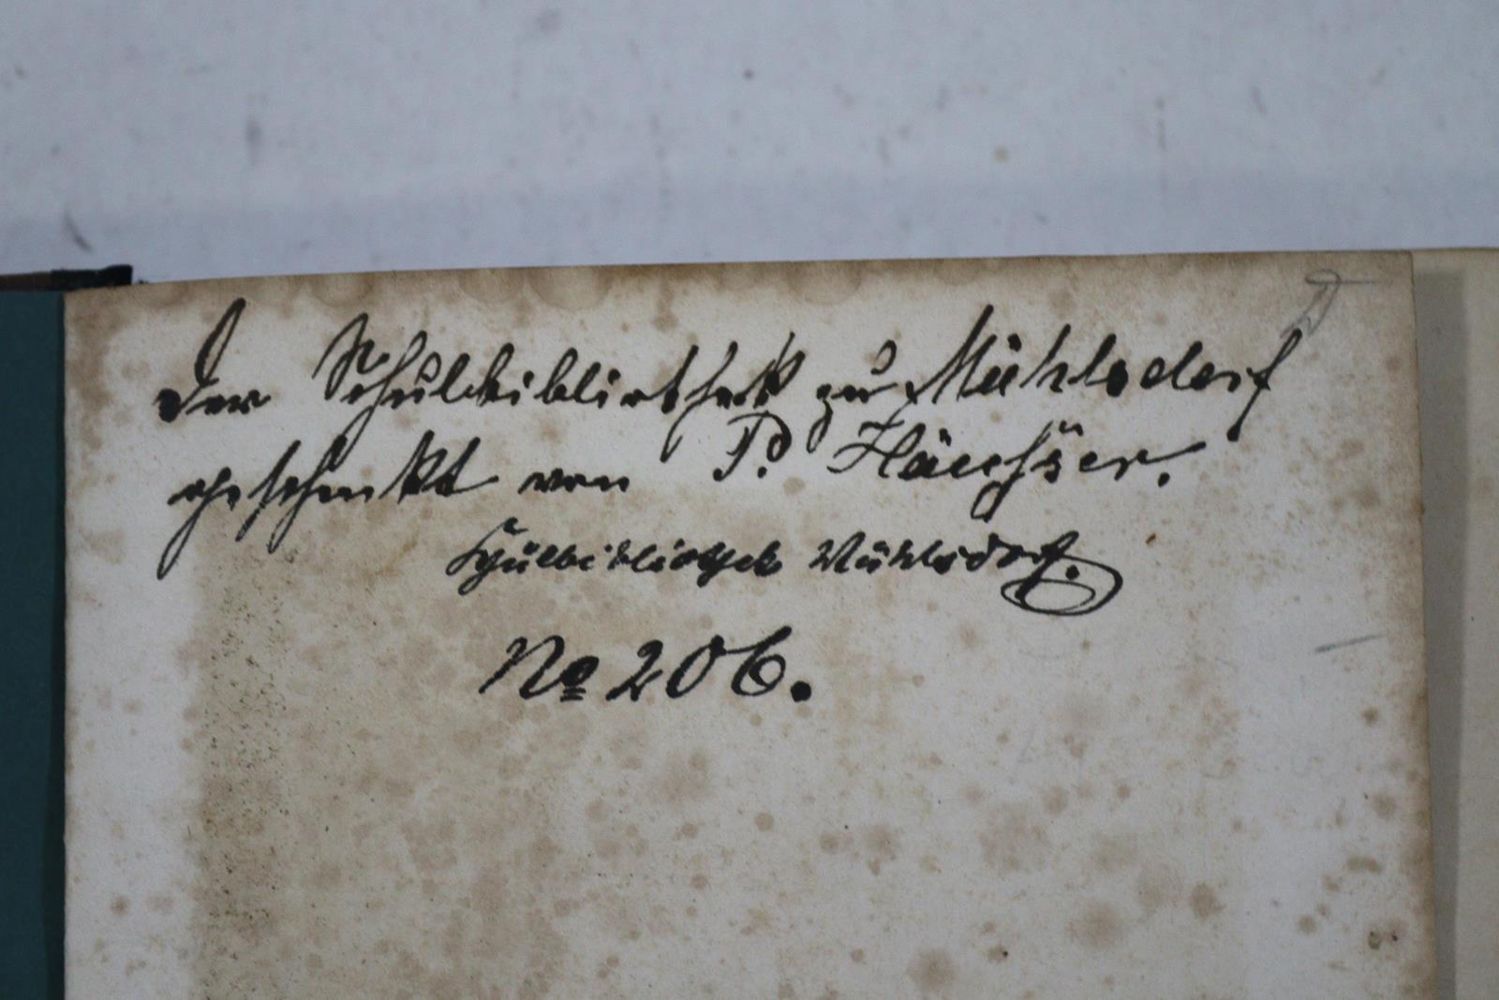 Der Schulbibliothek zu Mühlsdorf
geschenkt von P.
Schulbibliothek Mühlsdorf.
No 206.